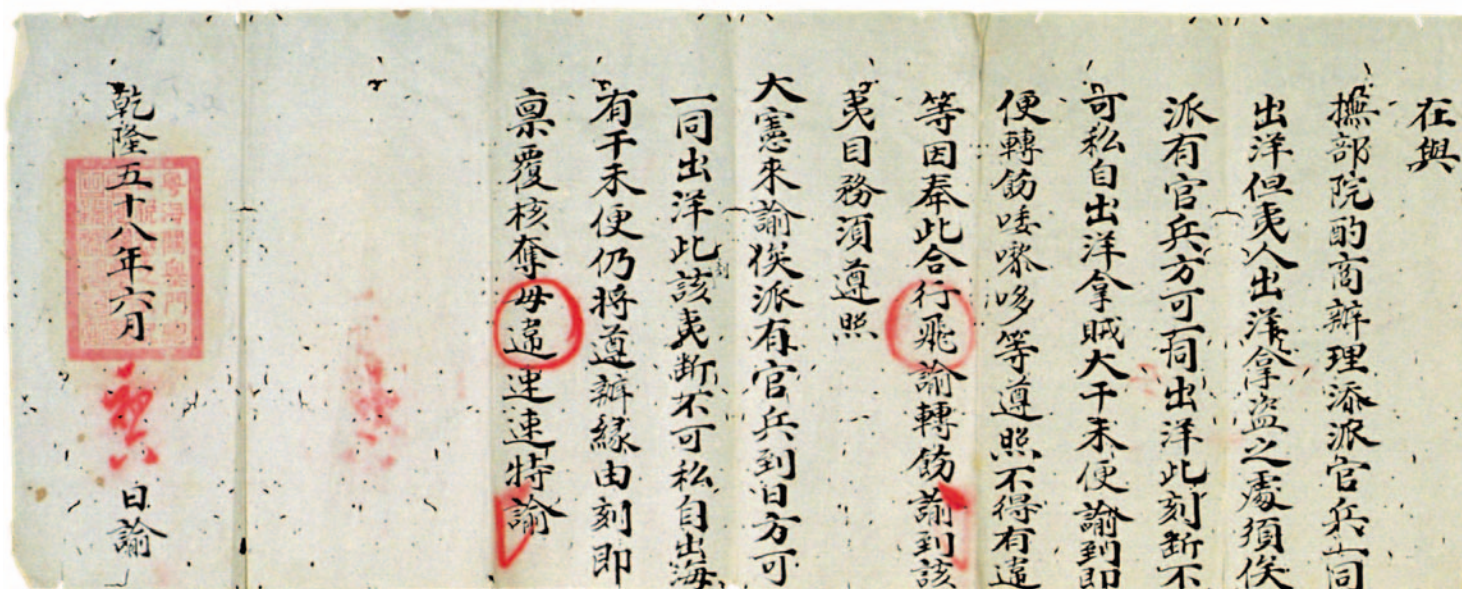 在與
撫部院酌商辦理添派官兵一同
出洋但夷人出洋拿盗之處須俟
派有官兵方可一同出洋此刻斷不
可私自出洋拿賊大干未便諭到即
便轉飭唩嚟哆等遵照不得有違
等因奉此合行飛諭轉飭諭到該
夷目務須遵照
大憲來諭俟派有官兵到日方可
一同出洋此刻該夷斷不可私自出海
有干未便仍將遵辦緣由刻即
稟覆核奪毋違速速特諭
乾隆五十八年六月 日諭